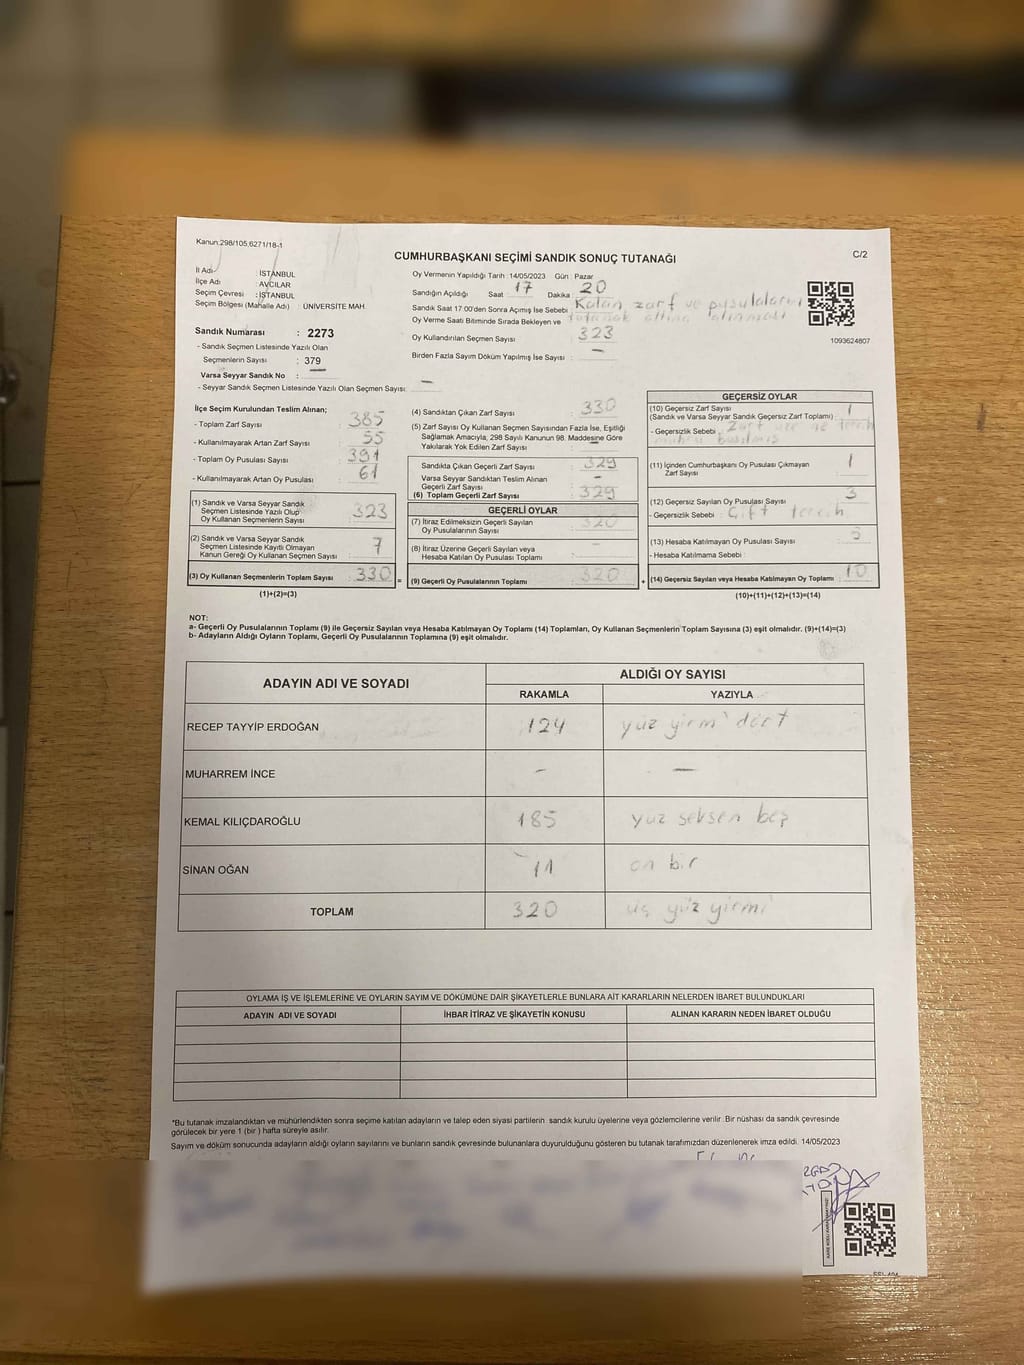 Kanun:298/105,6271/18-1
CUMHURBAŞKANI SEÇİMİ SANDIK SONUÇ TUTANAĞI
C/2
İl Adı : İSTANBUL
İlçe Adı : AVCILAR
Seçim Çevresi : İSTANBUL
Seçim Bölgesi (Mahalle Adı) : ÜNİVERSİTE MAH.
Sandık Numarası : 2273
- Sandık Seçmen Listesinde Yazılı Olan
Seçmenlerin Sayısı : 379
Varsa Seyyar Sandık No : —
- Seyyar Sandık Seçmen Listesinde Yazılı Olan Seçmen Sayısı: —
Oy Vermenin Yapıldığı Tarih : 14/05/2023 Gün : Pazar
Sandığın Açıldığı Saat : 17 Dakika : 20
Sandık Saat 17:00'den Sonra Açımış İse Sebebi : Kalan zarf ve pusulaların
Oy Verme Saati Bitiminde Sırada Bekleyen ve tutanak altına alınması
Oy Kullandırılan Seçmen Sayısı : 323
Birden Fazla Sayım Döküm Yapılmış İse Sayısı : —
1093624807
İlçe Seçim Kurulundan Teslim Alınan;
- Toplam Zarf Sayısı : 385
- Kullanılmayarak Artan Zarf Sayısı : 55
- Toplam Oy Pusulası Sayısı : 391
- Kullanılmayarak Artan Oy Pusulası : 61
(1) Sandık ve Varsa Seyyar Sandık
Seçmen Listesinde Yazılı Olup
Oy Kullanan Seçmenlerin Sayısı : 323
(2) Sandık ve Varsa Seyyar Sandık
Seçmen Listesinde Kayıtlı Olmayan
Kanun Gereği Oy Kullanan Seçmen Sayısı : 7
(3) Oy Kullanan Seçmenlerin Toplam Sayısı : 330 =
(1)+(2)=(3)
(4) Sandıktan Çıkan Zarf Sayısı : 330
(5) Zarf Sayısı Oy Kullanan Seçmen Sayısından Fazla İse, Eşitliği
Sağlamak Amacıyla, 298 Sayılı Kanunun 98. Maddesine Göre
Yakılarak Yok Edilen Zarf Sayısı : —
Sandıkta Çıkan Geçerli Zarf Sayısı : 329
Varsa Seyyar Sandıktan Teslim Alınan
Geçerli Zarf Sayısı : -
(6) Toplam Geçerli Zarf Sayısı : 329
GEÇERLİ OYLAR
(7) İtiraz Edilmeksizin Geçerli Sayılan
Oy Pusulalarının Sayısı : 320
(8) İtiraz Üzerine Geçerli Sayılan veya
Hesaba Katılan Oy Pusulası Toplamı : -
(9) Geçerli Oy Pusulalarının Toplamı : 320 +
GEÇERSİZ OYLAR
(10) Geçersiz Zarf Sayısı
(Sandık ve Varsa Seyyar Sandık Geçersiz Zarf Toplamı) : 1
- Geçersizlik Sebebi : Zarf tercih
mührü basılmış
(11) İçinden Cumhurbaşkanı Oy Pusulası Çıkmayan
Zarf Sayısı : 1
(12) Geçersiz Sayılan Oy Pusulası Sayısı : 3
- Geçersizlik Sebebi : Çift tercih
(13) Hesaba Katılmayan Oy Pusulası Sayısı : 5
- Hesaba Katılmama Sebebi :
(14) Geçersiz Sayılan veya Hesaba Katılmayan Oy Toplamı : 10
(10)+(11)+(12)+(13)=(14)
NOT:
a- Geçerli Oy Pusulalarının Toplamı (9) ile Geçersiz Sayılan veya Hesaba Katılmayan Oy Toplamı (14) Toplamları, Oy Kullanan Seçmenlerin Toplam Sayısına (3) eşit olmalıdır. (9)+(14)=(3)
b- Adayların Aldığı Oyların Toplamı, Geçerli Oy Pusulalarının Toplamına (9) eşit olmalıdır.
ADAYIN ADI VE SOYADI
ALDIĞI OY SAYISI
RAKAMLA YAZIYLA
RECEP TAYYİP ERDOĞAN 124 yüz yirmi dört
MUHARREM İNCE - —
KEMAL KILIÇDAROĞLU 185 yüz seksen beş
SİNAN OĞAN 11 on bir
TOPLAM 320 üç yüz yirmi
OYLAMA İŞ VE İŞLEMLERİNE VE OYLARIN SAYIM VE DÖKÜMÜNE DAİR ŞİKAYETLERLE BUNLARA AİT KARARLARIN NELERDEN İBARET BULUNDUKLARI
ADAYIN ADI VE SOYADI İHBAR İTİRAZ VE ŞİKAYETİN KONUSU ALINAN KARARIN NEDEN İBARET OLDUĞU
*Bu tutanak imzalandıktan ve mühürlendikten sonra seçime katılan adayların ve talep eden siyasi partilerin sandık kurulu üyelerine veya gözlemcilerine verilir. Bir nüshası da sandık çevresinde
görülecek bir yere 1 (bir ) hafta süreyle asılır.
Sayım ve döküm sonucunda adayların aldığı oyların sayılarını ve bunların sandık çevresinde bulunanlara duyurulduğunu gösteren bu tutanak tarafımızdan düzenlenerek imza edildi. 14/05/2023